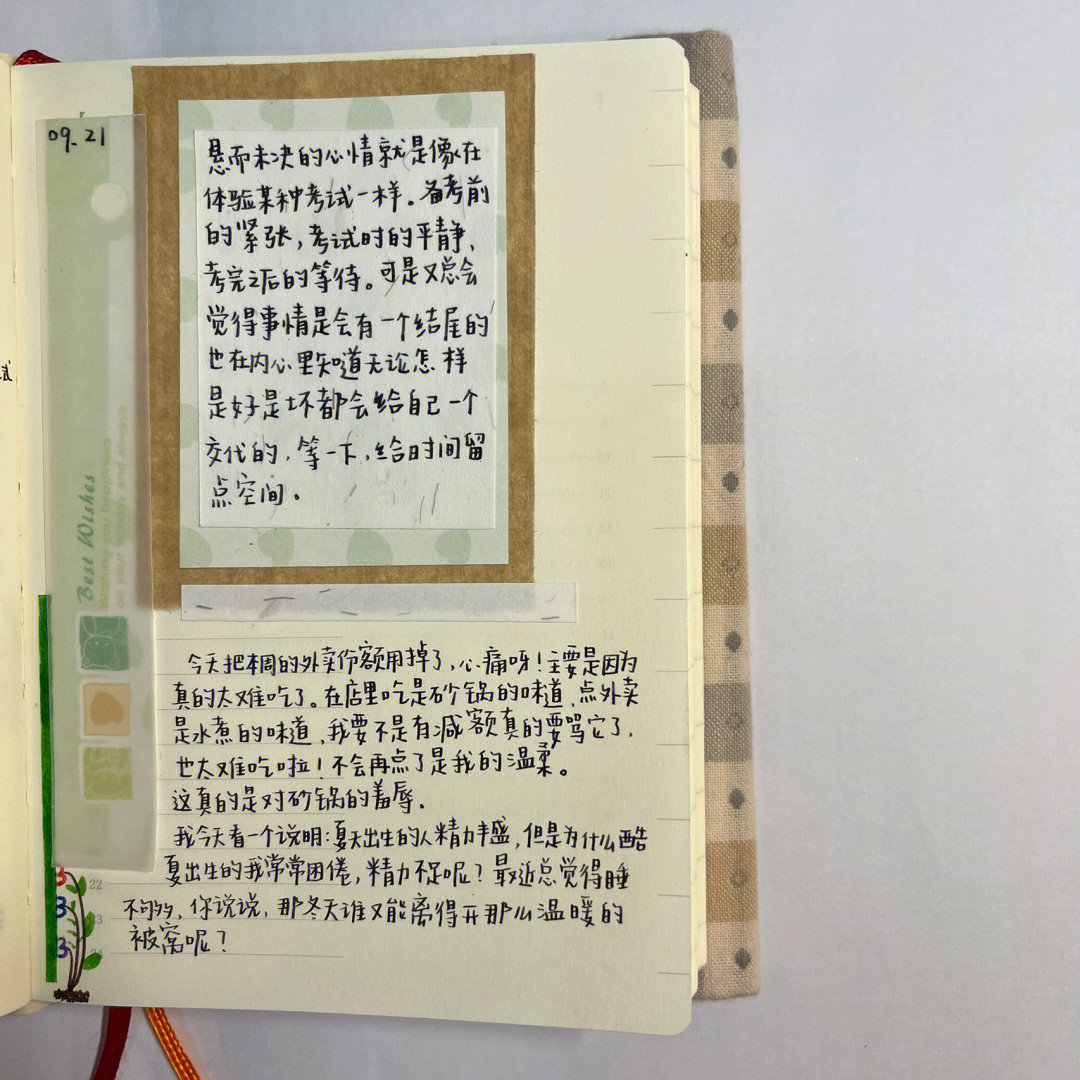 09.21
悬而未决的心情就是像在
体验某种考试一样。备考前
的紧张,考试时的平静、
考完之后的等待。可是又总会
觉得事情是会有一个结尾的
也在内心里知道无论怎样
是好是坏都会给自己一个
交代的,等一下,给时间留
点空间。
Best Wishes
今天把本周的外卖份额用掉了,心痛呀!主要是因为
真的太难吃了。在店里吃是砂锅的味道,点外卖
是水煮的味道,我要不是有减额真的要骂它了,
也太难吃啦!不会再点了是我的温柔。
这真的是对砂锅的羞辱。
我今天看一个说明:夏天出生的人精力丰盛,但是为什么酷
夏出生的我常常困倦,精力不足呢?最近总觉得睡
不够,你说说,那冬天谁又能离得开那么温暖的
被窝呢?
3
3
3
22
23
24